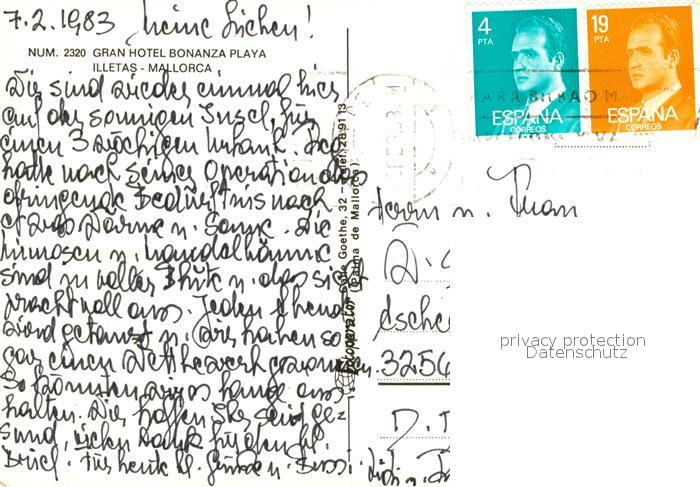 7.2.1983 Meine Lieben!
NUM. 2320 GRAN HOTEL BONANZA PLAYA
ILLETAS - MALLORCA
Wir sind wieder einmal hier
auf der sonnigen Insel, für
einen 3 wöchigen Urlaub.
hatte nach seiner Operation das
dringende Bedürfnis nach
etwas Wärme u. Sonne. Die
Mimosen u. Mandelbäume
sind in voller Blüte u. das sieht
prachtvoll aus. Jeden Abend
wird getanzt u. wir haben so
gar einen Wettbewerb gewonnen.
So könnten wir es lange aus
halten. Wir hoffen Ihr seid ge=
sund, vielen Dank für den lb.
Brief. Für heute lb. Grüsse u. Bussi
Calle Goethe, 32 - Telef. 28 91 13
(Palma de Mallorca)
4
PTA
ESPAÑA
CORREOS
19
PTA
ESPAÑA
CORREOS
PARA BILBAO
Herrn u. Frau
3256
privacy protection
Datenschutz